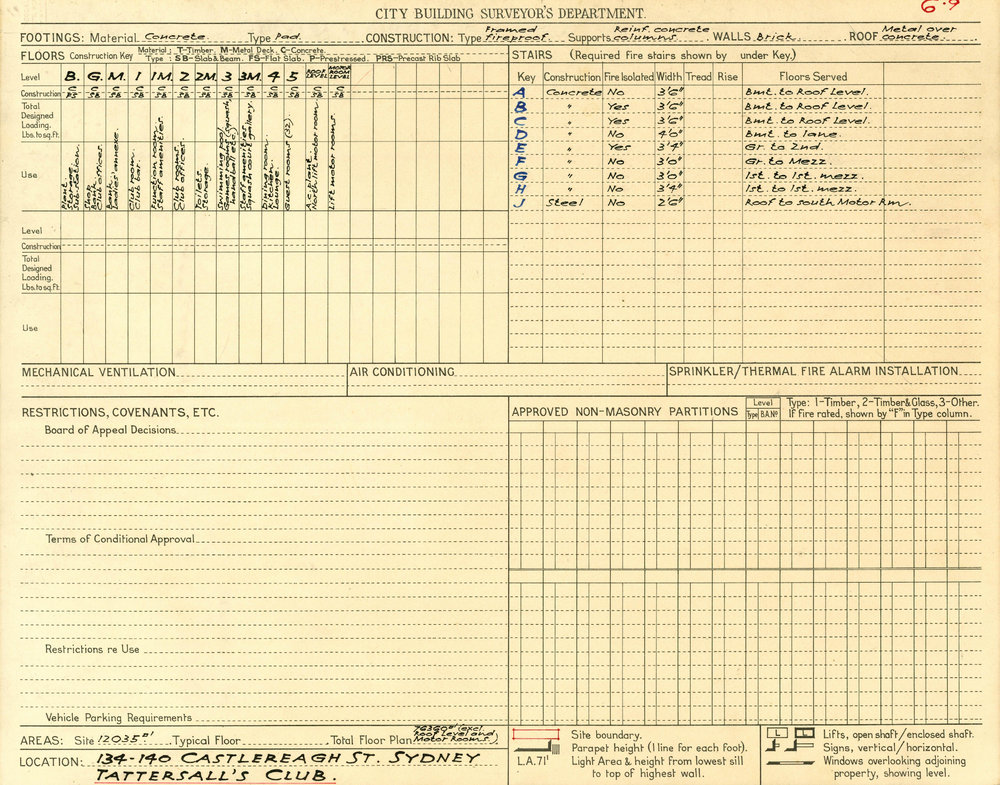 CITY BUILDING SURVEYOR'S DEPARTMENT.
6.9
FOOTINGS: Material Concrete Type Pad. CONSTRUCTION: Type Framed fireproof Supports Reinf. concrete columns. WALLS Brick. ROOF Metal over concrete.
FLOORS Construction Key Material: T-Timber, M-Metal Deck, C-Concrete.
Type: SB-Slab & Beam. FS-Flat Slab. P-Prestressed. PRS-Precast Rib Slab
Level B. G. M. 1 1M. 2 2M. 3 3M. 4 5 ROOF LEVEL MOTOR ROOM LEVEL
Construction
Total Designed Loading. Lbs. to sq. ft.
Use
Plant Storage Substation.
Shop Bank Club offices.
Bank Ladies' annexe.
Club room Club bar.
Function room Staff amenities.
Club rooms. Club offices
Toilets. Storage.
Swimming pool Games rooms (squash, handball etc.)
Staff amenities Squash court gallery.
Dining room Kitchen Lounge.
Guest rooms (32).
A.c. plant. North lift motor room.
Lift motor rooms.
Level
Construction
Total Designed Loading. Lbs. to sq. ft.
Use
STAIRS (Required fire stairs shown by under Key.)
Key Construction Fire Isolated Width Tread Rise Floors Served
A Concrete No 3'6" Bmt. to Roof Level.
B " Yes 3'6" Bmt. to Roof Level.
C " Yes 3'6" Bmt. to Roof Level.
D " No 4'0" Bmt. to lane.
E " Yes 3'4" Gr. to 2nd.
F " No 3'0" Gr. to Mezz.
G " No 3'0" 1st. to 1st. mezz.
H " No 3'4" 1st. to 1st. mezz.
J Steel No 2'6" Roof to south Motor Rm.
MECHANICAL VENTILATION
AIR CONDITIONING
SPRINKLER/THERMAL FIRE ALARM INSTALLATION
RESTRICTIONS, COVENANTS, ETC.
Board of Appeal Decisions
Terms of Conditional Approval
Restrictions re Use
Vehicle Parking Requirements
APPROVED NON-MASONRY PARTITIONS Level Type B.A.Nº Type: 1-Timber, 2-Timber & Glass, 3-Other.
If fire rated, shown by "F" in Type column.
AREAS: Site 12035 ▫' Typical Floor Total Floor Plan 76360 ▫' (excl Roof Level and Motor Rooms.)
LOCATION: 134-140 CASTLEREAGH ST. SYDNEY
TATTERSALL'S CLUB.
Site boundary.
Parapet height (1 line for each foot).
L.A. 71' Light Area & height from lowest sill
to top of highest wall.
L Lifts, open shaft/enclosed shaft.
Signs, vertical/horizontal.
Windows overlooking adjoining
property, showing level.